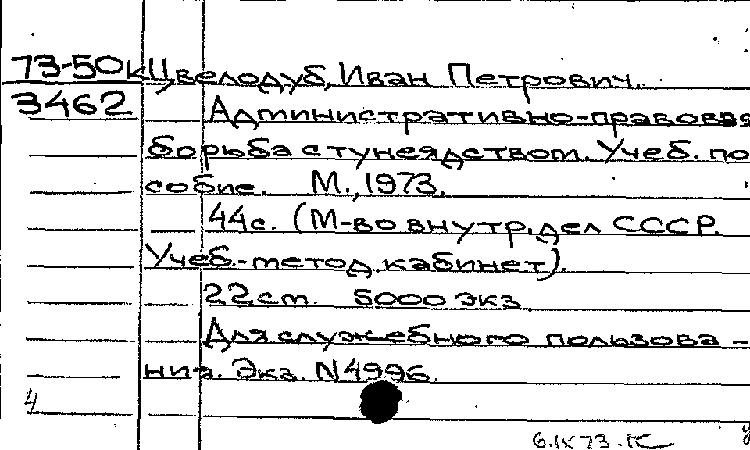 73-50к Цвелодуб, Иван Петрович.
3462 Административно-правовая
борьба с тунеядством. Учеб. по
собие. М., 1973.
44с. (М-во внутр. дел СССР.
Учеб.-метод. кабинет).
22 см. 5000 экз
Для служебного пользова-
ния. Экз. N4996.
4
6.IX 73.